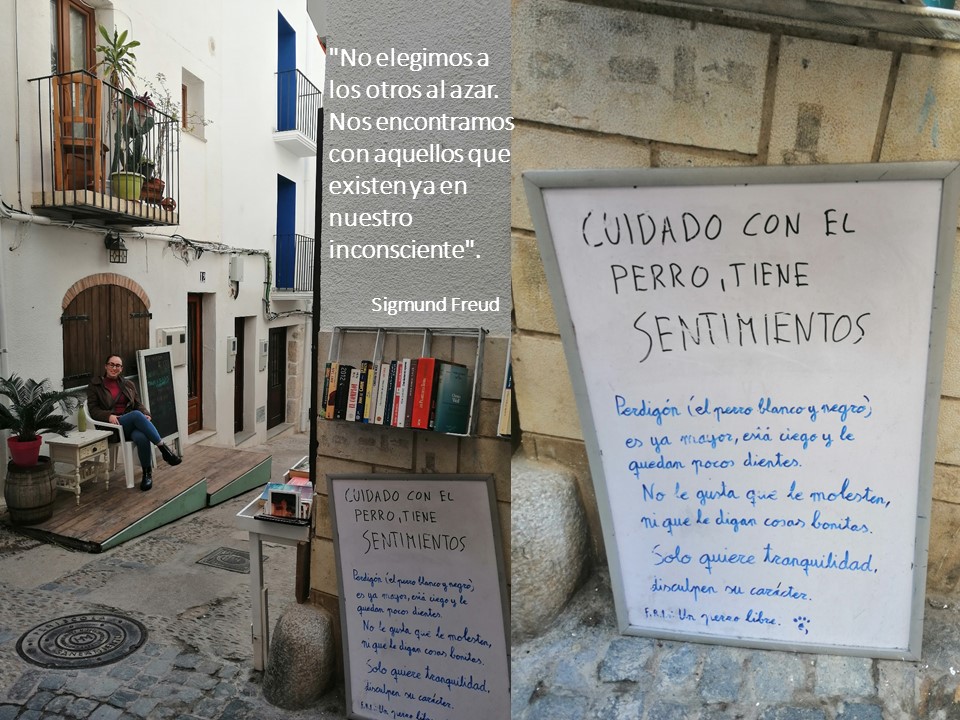 "No elegimos a
los otros al azar.
Nos encontramos
con aquellos que
existen ya en
nuestro
inconsciente".
Sigmund Freud
12
2012
CUIDADO CON EL
PERRO, TIENE
SENTIMIENTOS
Perdigón (el perro blanco y negro)
es ya mayor, está ciego y le
quedan pocos dientes.
No le gusta que le molesten,
ni que le digan cosas bonitas.
Solo quiere tranquilidad,
disculpen su carácter.
F.R.I.: Un perro libre.
CUIDADO CON EL
PERRO, TIENE
SENTIMIENTOS
Perdigón (el perro blanco y negro)
es ya mayor, está ciego y le
quedan pocos dientes.
No le gusta que le molesten,
ni que le digan cosas bonitas.
Solo quiere tranquilidad,
disculpen su carácter.
F.R.I.: Un perro libre.